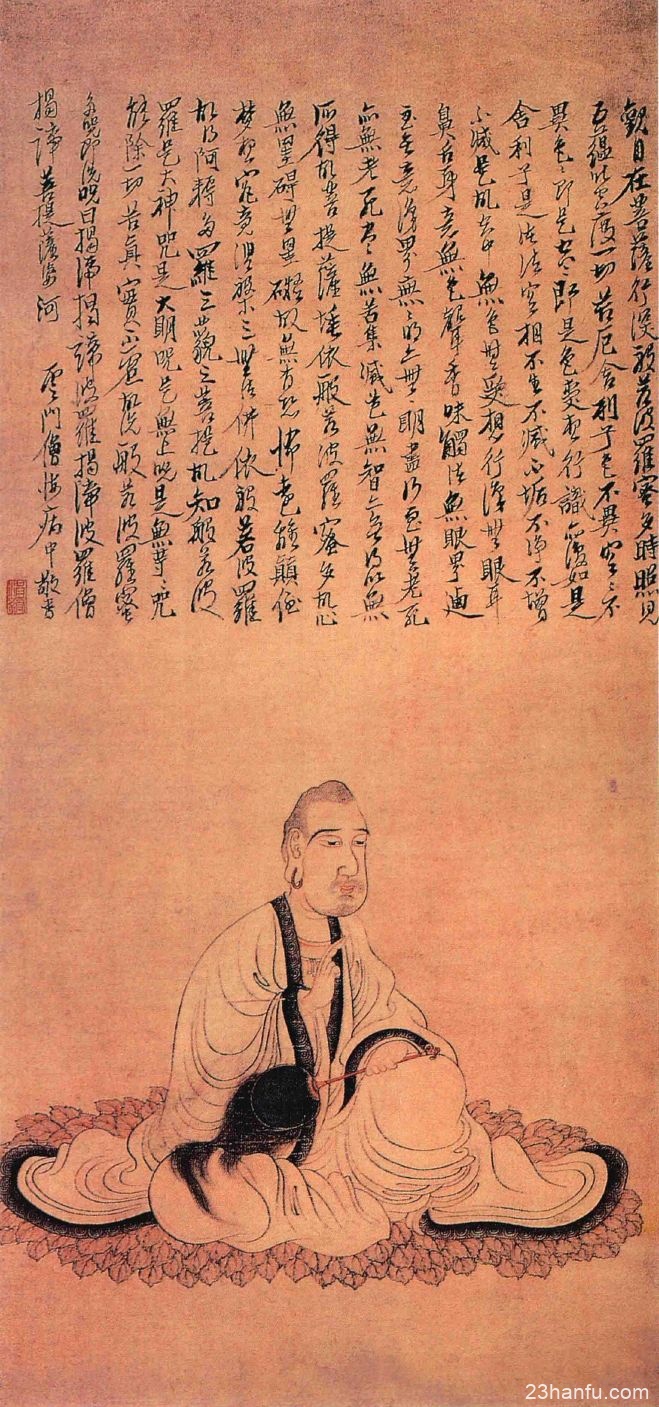 觀自在菩薩行深般若波羅蜜多時照見
五蘊皆空度一切苦厄舍利子色不異空〻不
異色〻即是空〻即是色受想行識亦復如是
舍利子是諸法空相不生不滅不垢不淨不增
不減是故空中無色無受想行識無眼耳
鼻舌身意無色聲香味觸法無眼界迺
至無意識界無〻明亦無〻明盡乃至無老死
亦無老死盡無苦集滅道無智亦無得以無
所得故菩提薩埵依般若波羅蜜多故心
無罣礙無罣礙故無有恐怖遠離顛倒
夢想究竟涅槃三世諸佛依般若波羅
故得阿耨多羅三藐三菩提故知般若波
羅是大神咒是大明咒是無上咒是無等〻咒
能除一切苦真實不虛故說般若波羅蜜
多咒即說咒曰揭諦揭諦波羅揭諦波羅僧
揭諦菩提薩婆河 雲門僧悔病中敬書
23hanfu.com